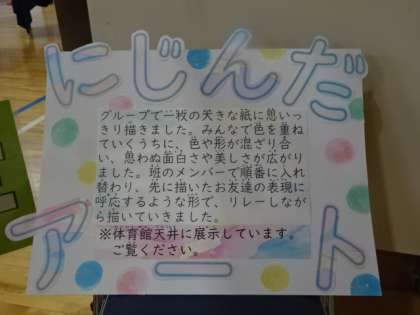 にじんだ
グループで一枚の大きな紙に思いっ
きり描きました。みんなで色を重ね
ていくうちに、色や形が混ざり合
い、思わぬ面白さや美しさが広がり
ました。班のメンバーで順番に入れ
替わり、先に描いたお友達の表現に
呼応するような形で、リレーしなが
ら描いていきました。
※体育館天井に展示しています。
ご覧ください。
アート